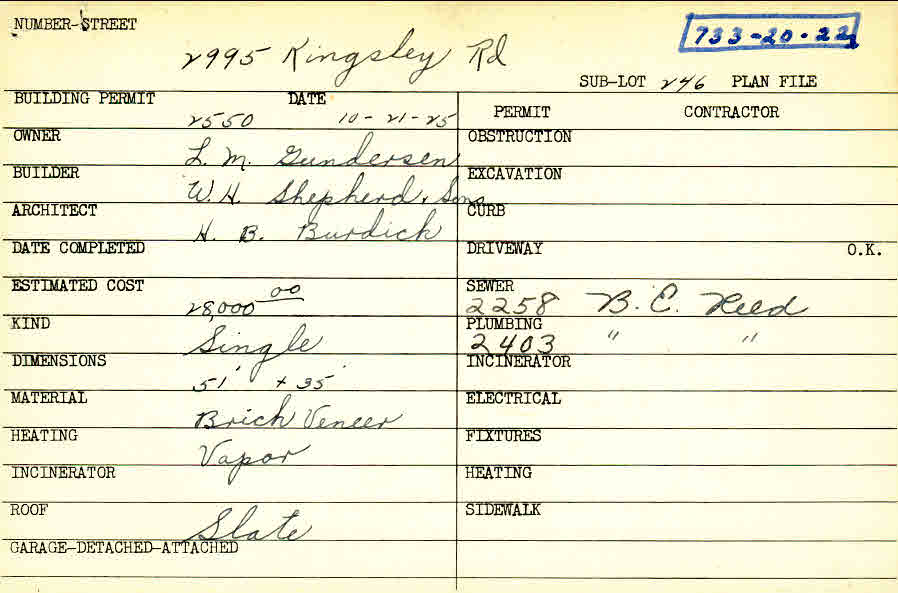 NUMBER-STREET
2995 Kingsley Rd
733-20-22
SUB-LOT 246 PLAN FILE
BUILDING PERMIT 2550 DATE 10-21-25
OWNER L. M. Gundersen
BUILDER W. H. Shepherd & Sons
ARCHITECT H. B. Burdick
DATE COMPLETED
ESTIMATED COST 28,000 00
KIND Single
DIMENSIONS 51' + 35'
MATERIAL Brick Veneer
HEATING Vapor
INCINERATOR
ROOF Slate
GARAGE-DETACHED-ATTACHED
PERMIT CONTRACTOR
OBSTRUCTION
EXCAVATION
CURB
DRIVEWAY O.K.
SEWER 2258 B. C. Reed
PLUMBING 2403 " "
INCINERATOR
ELECTRICAL
FIXTURES
HEATING
SIDEWALK